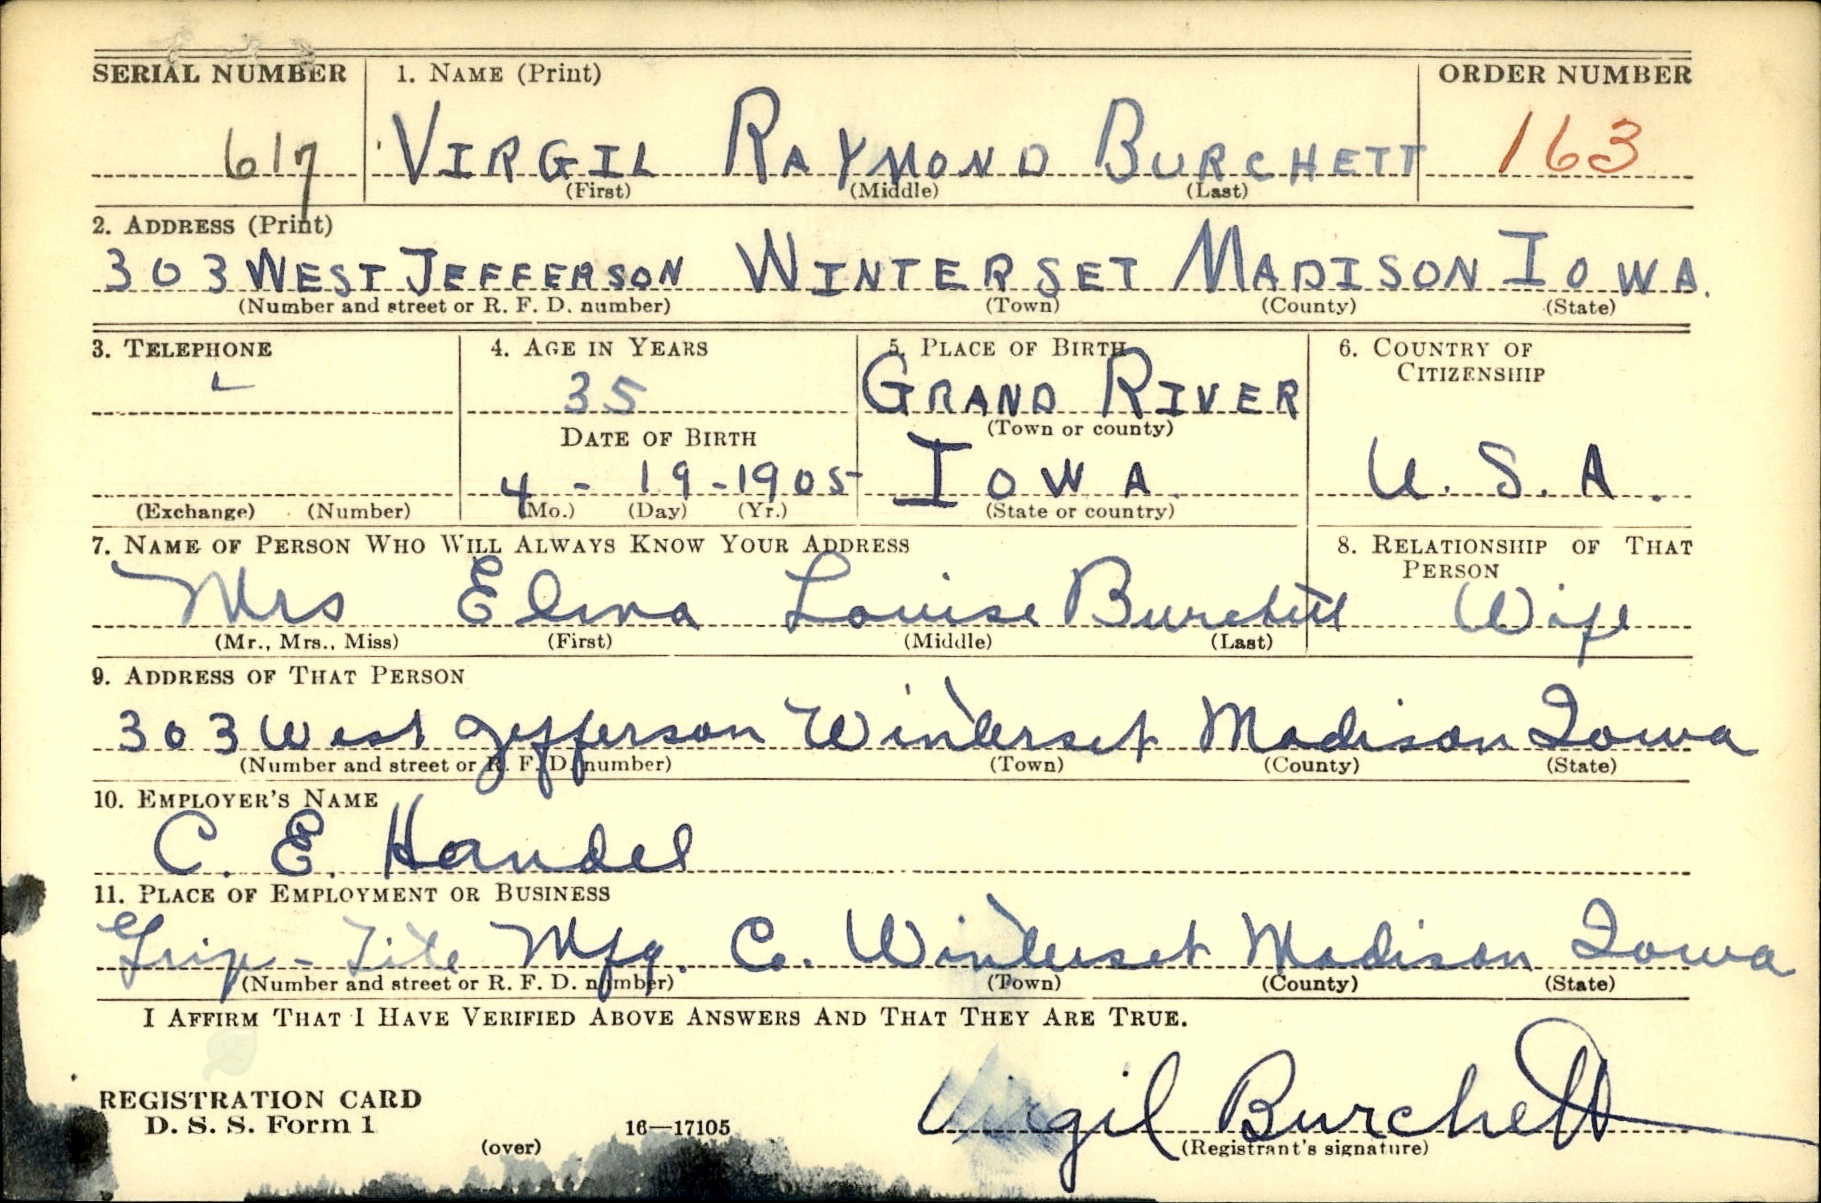 SERIAL NUMBER 1. NAME (Print) ORDER NUMBER
617 VIRGIL RAYMOND BURCHETT 163
(First) (Middle) (Last)
2. ADDRESS (Print)
303 WEST JEFFERSON WINTERSET MADISON IOWA.
(Number and street or R. F. D. number) (Town) (County) (State)
3. TELEPHONE 4. AGE IN YEARS 5. PLACE OF BIRTH 6. COUNTRY OF
CITIZENSHIP
35 GRAND RIVER
(Town or county)
DATE OF BIRTH
4 - 19 - 1905 IOWA. U. S. A.
(Exchange) (Number) (Mo.) (Day) (Yr.) (State or country)
7. NAME OF PERSON WHO WILL ALWAYS KNOW YOUR ADDRESS 8. RELATIONSHIP OF THAT
PERSON
Mrs Elma Louise Burchett Wife
(Mr., Mrs., Miss) (First) (Middle) (Last)
9. ADDRESS OF THAT PERSON
303 West Jefferson Winterset Madison Iowa
(Number and street or R. F. D. number) (Town) (County) (State)
10. EMPLOYER'S NAME
C. E. Handel
11. PLACE OF EMPLOYMENT OR BUSINESS
Grip-Tite Mfg. Co. Winterset Madison Iowa
(Number and street or R. F. D. number) (Town) (County) (State)
I AFFIRM THAT I HAVE VERIFIED ABOVE ANSWERS AND THAT THEY ARE TRUE.
Virgil Burchett
REGISTRATION CARD
D. S. S. Form 1
(over) 16—17105 (Registrant's signature)